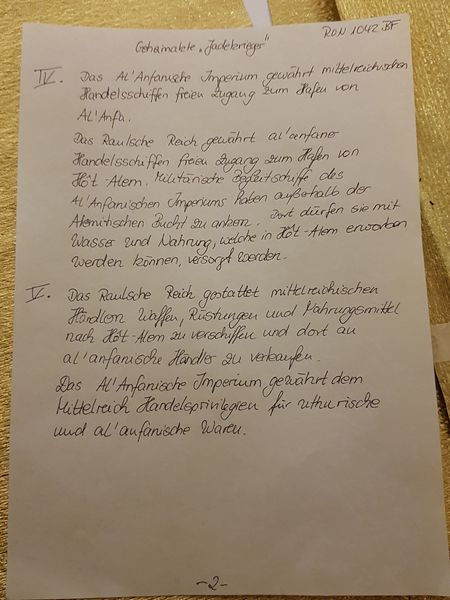 Geheimakte „Jadekrieger"
RON 1042 BF
IV. Das Al'Anfanische Imperium gewährt mittelreichischen
Handelsschiffen freien Zugang zum Hafen von
Al'Anfa.
Das Raulsche Reich gewährt al'anfaner
Handelsschiffen freien Zugang zum Hafen von
Hôt-Alem. Militärische Begleitschiffe des
Al'Anfanischen Imperiums haben außerhalb der
Alemitischen Bucht zu ankern. Dort dürfen sie mit
Wasser und Nahrung, welche in Hôt-Alem erworben
werden können, versorgt werden.
V. Das Raulsche Reich gestattet mittelreichischen
Händlern Waffen, Rüstungen und Nahrungsmittel
nach Hôt-Alem zu verschiffen und dort an
al'anfanische Händler zu verkaufen.
Das Al'Anfanische Imperium gewährt dem
Mittelreich Handelsprivilegien für uthurische
und al'anfanische Waren.
-2-